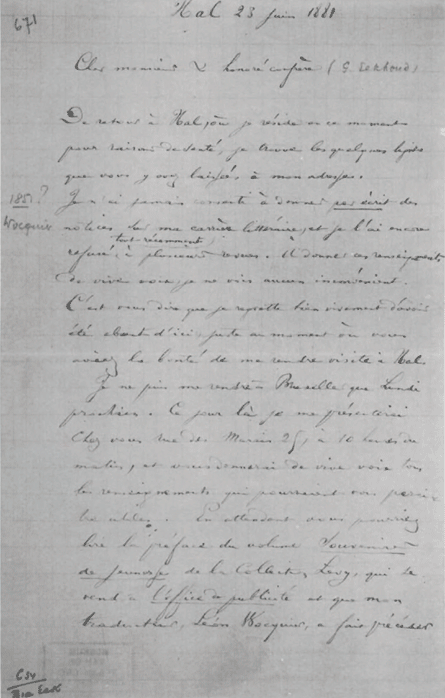 671
Hal 23 juin 1881
Cher monsieur & honoré confrère (G. Eekhoud)
De retour à Hal, où je réside en ce moment
pour raison de santé, je trouve les quelques lignes
que vous y avez laissées, à mon adresse.
1851?
Wocquier
Je n'ai jamais consenti à donner par écrit des
notices sur ma carrière littéraire, et je l'ai encore
tout récemment
refusé, à plusieurs revues. A donner ces renseignements
de vive voix, je ne vois aucun inconvénient.
C'est vous dire que je regrette bien vivement d'avoir
été absent d'ici, juste au moment où vous
aviez la bonté de me rendre visite à Hal.
Je ne puis me rendre à Bruxelles que Lundi
prochain. Ce jour là je me présenterai
chez vous rue des Marais 25, à 10 heures du
matin, et vous donnerai de vive voix tous
les renseignements qui pourraient vous
être utiles. En attendant vous pourriez
lire la préface du volume Souvenirs
de jeunesse de la Collection Levy, qui se
vend à l'office de publicité et que mon
traducteur, Léon Wocquier, a fait précéder